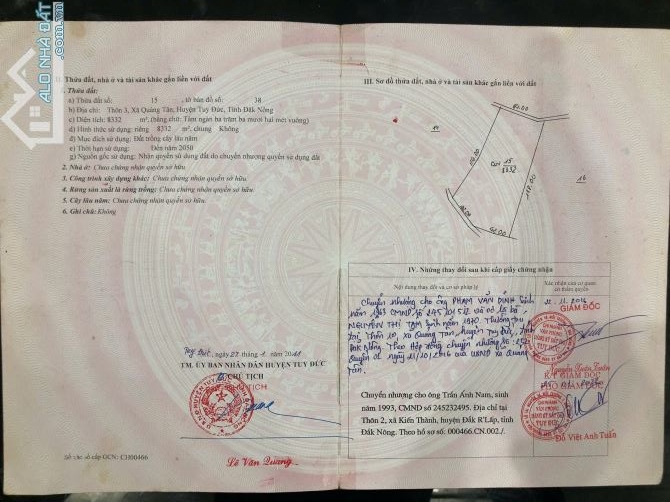 ALO NHÀ ĐẤT
II. Thửa đất, nhà ở và tài sản khác gắn liền với đất
1. Thửa đất:
a) Thửa đất số: 15 , tờ bản đồ số: 38
b) Địa chỉ: Thôn 3, Xã Quảng Tân, Huyện Tuy Đức, Tỉnh Đắk Nông
c) Diện tích: 8332 m², (bằng chữ: Tám ngàn ba trăm ba mươi hai mét vuông)
d) Hình thức sử dụng: riêng 8332 m², chung Không
đ) Mục đích sử dụng: Đất trồng cây lâu năm
e) Thời hạn sử dụng: Đến năm 2050
g) Nguồn gốc sử dụng: Nhận quyền sử dụng đất do chuyển nhượng quyền sử dụng đất
2. Nhà ở: Chưa chứng nhận quyền sở hữu
3. Công trình xây dựng khác: Chưa chứng nhận quyền sở hữu
4. Rừng sản xuất là rừng trồng: Chưa chứng nhận quyền sở hữu
5. Cây lâu năm: Chưa chứng nhận quyền sở hữu
6. Ghi chú: Không
Tuy Đức, ngày 27 tháng 1 năm
TM. ỦY BAN NHÂN DÂN HUYỆN TUY ĐỨC
CHỦ TỊCH
Lê Văn Quang
Số vào sổ cấp GCN: CH00466
III. Sơ đồ thửa đất, nhà ở và tài sản khác gắn liền với đất
15
8332
16
IV. Những thay đổi sau khi cấp giấy chứng nhận
Nội dung thay đổi và cơ sở pháp lý
Xác nhận của cơ quan
có thẩm quyền
Chuyển nhượng cho ông PHẠM VĂN ĐÌNH sinh
năm 1963 CMND số và bà
NGUYỄN THỊ TÁM sinh năm 1970. Thường trú
tại Thôn 10, xã Quảng Tân, huyện Tuy Đức, tỉnh
Đắk Nông. Theo Hợp đồng chuyển nhượng số
Quyển 01 ngày 21/10/2016 của UBND xã Quảng
Tân.
11.2016
GIÁM ĐỐC
Nguyễn Xuân Tuấn
Chuyển nhượng cho ông Trần Ánh Nam, sinh
năm 1993, CMND số 245232495. Địa chỉ tại
Thôn 2, xã Kiến Thành, huyện Đắk R'Lấp, tỉnh
Đắk Nông. Theo hồ sơ số: 000466.CN.002./.
KT. GIÁM ĐỐC
PHÓ GIÁM ĐỐC
Đỗ Việt Anh Tuấn